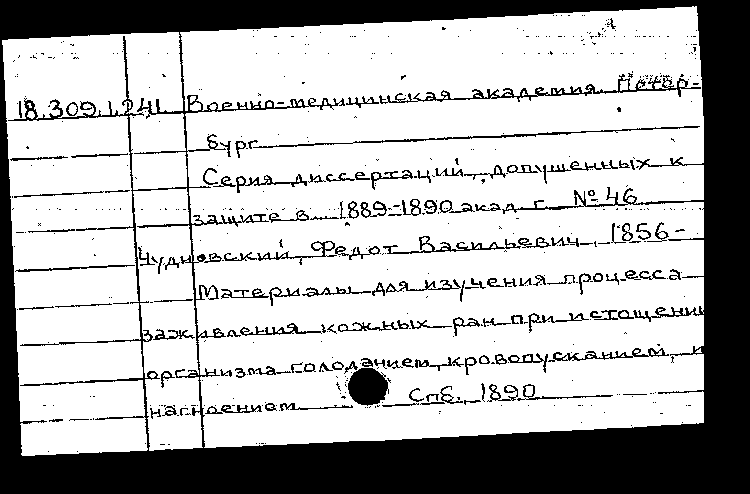 18.309.1.241 Военно-медицинская академия. Петер-
бург
Серия диссертаций, допущенных к
защите в 1889-1890 акад. г. № 46
Чудновский, Федот Васильевич, 1856-
Материалы для изучения процесса
заживления кожных ран при истощении
организма голоданием, кровопусканием, и
нагноением Спб., 1890